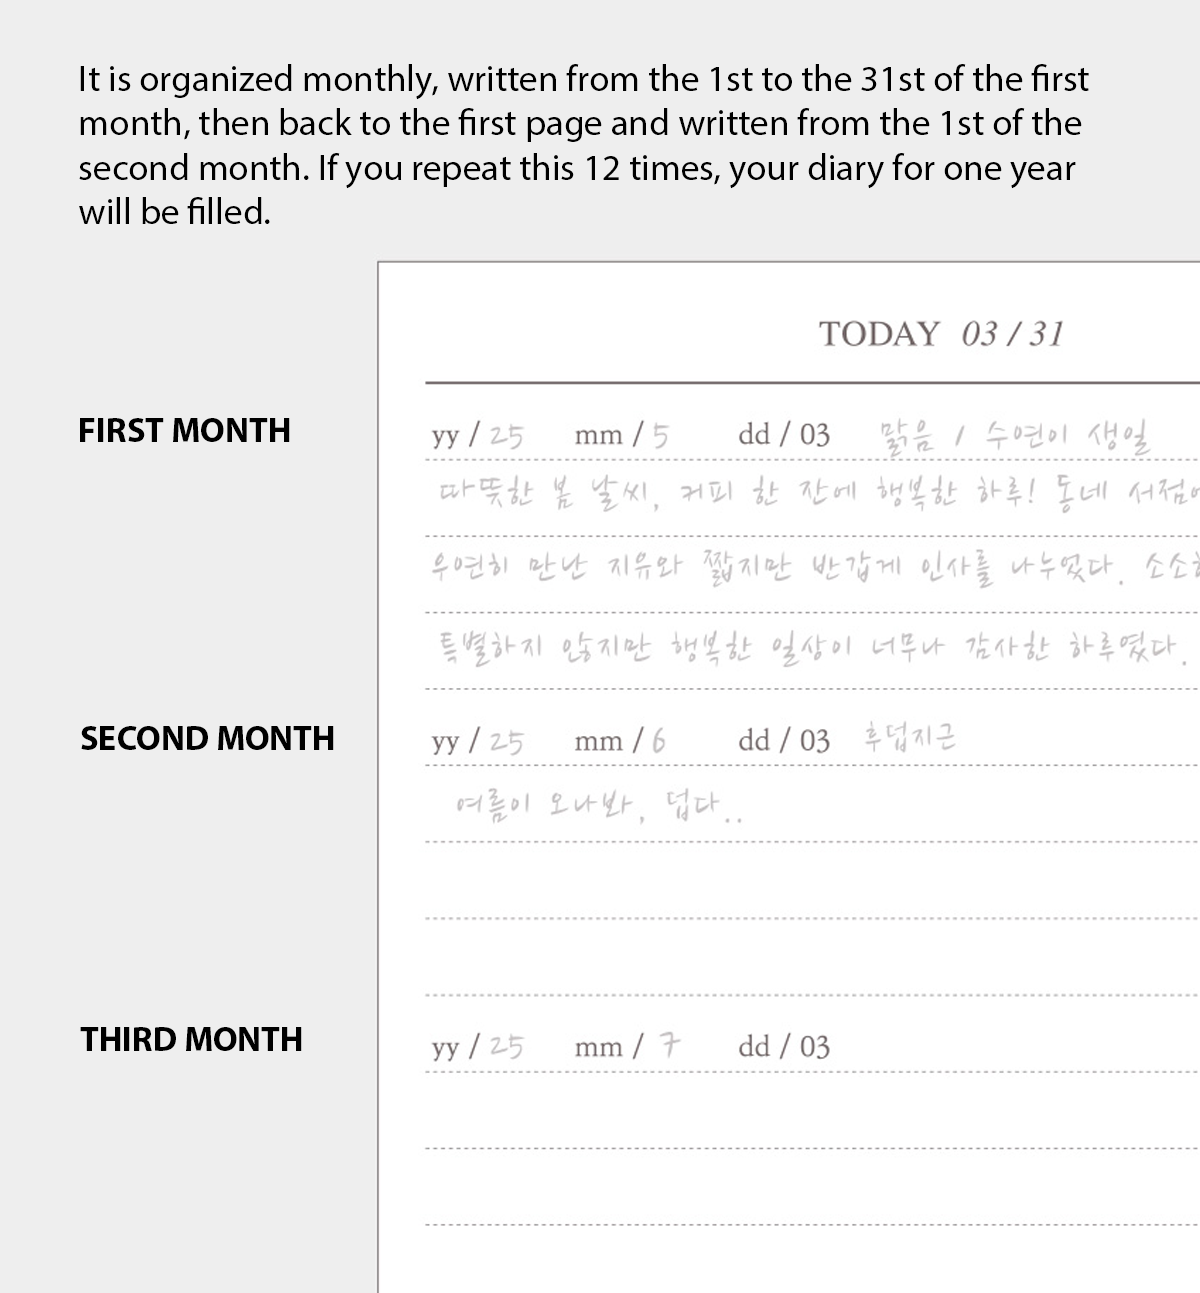 It is organized monthly, written from the 1st to the 31st of the first
month, then back to the first page and written from the 1st of the
second month. If you repeat this 12 times, your diary for one year
will be filled.
TODAY 03 / 31
FIRST MONTH
yy / 25 mm / 5 dd / 03 맑음 / 수연이 생일
따뜻한 봄 날씨, 커피 한 잔에 행복한 하루! 동네 서점에
우연히 만난 지유와 짧지만 반갑게 인사를 나누었다. 소소하
특별하지 않지만 행복한 일상이 너무나 감사한 하루였다.
SECOND MONTH
yy / 25 mm / 6 dd / 03 후덥지근
여름이 오나봐, 덥다..
THIRD MONTH
yy / 25 mm / 7 dd / 03